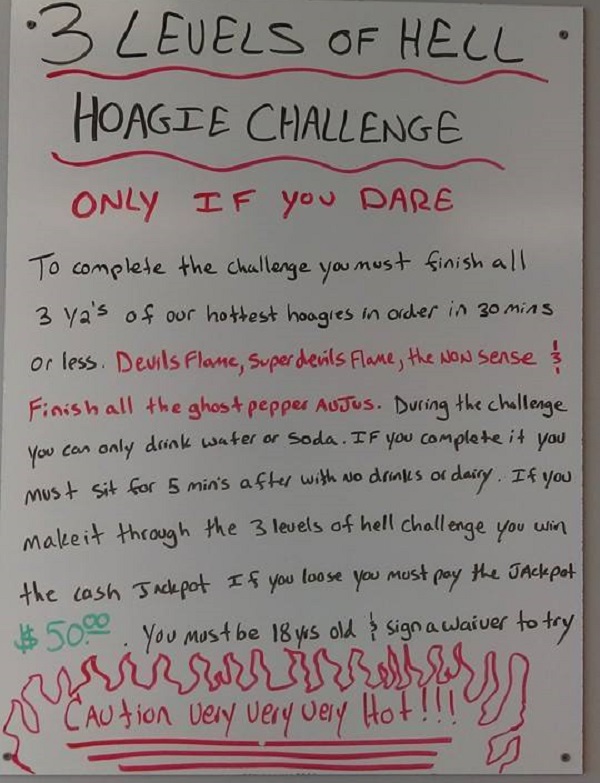 3 LEVELS OF HELL
HOAGIE CHALLENGE
ONLY IF YOU DARE
To complete the challenge you must finish all
3 1/2's of our hottest hoagies in order in 30 mins
or less. Devils Flame, Super devils Flame, the NON sense &
Finish all the ghost pepper AuJus. During the challenge
you can only drink water or soda. IF you complete it you
must sit for 5 min's after with no drinks or dairy. If you
make it through the 3 levels of hell challenge you win
the cash Jackpot If you loose you must pay the JAckpot
$50.00. You must be 18 yrs old & sign a waiver to try
CAution very very very Hot!!!